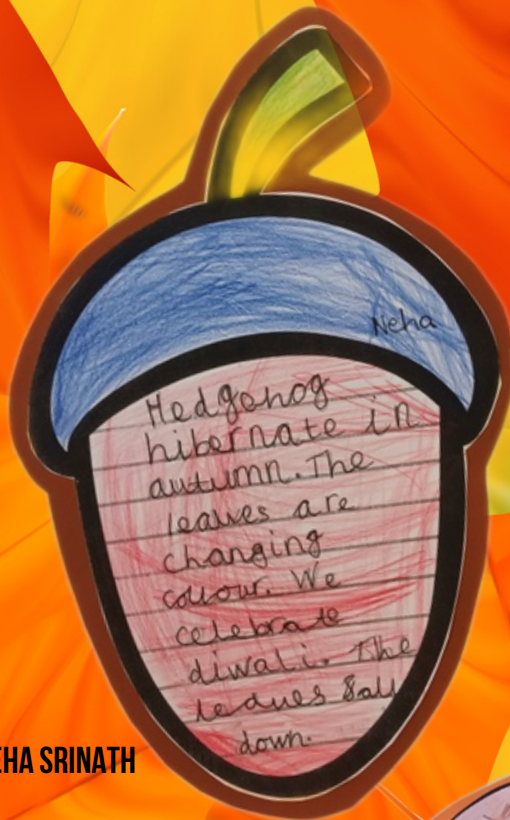 Neha
Hedgehog
hibernate in
autumn. The
leaves are
changing
colour. We
celebrate
diwali. The
leaves fall
down.
EHA SRINATH